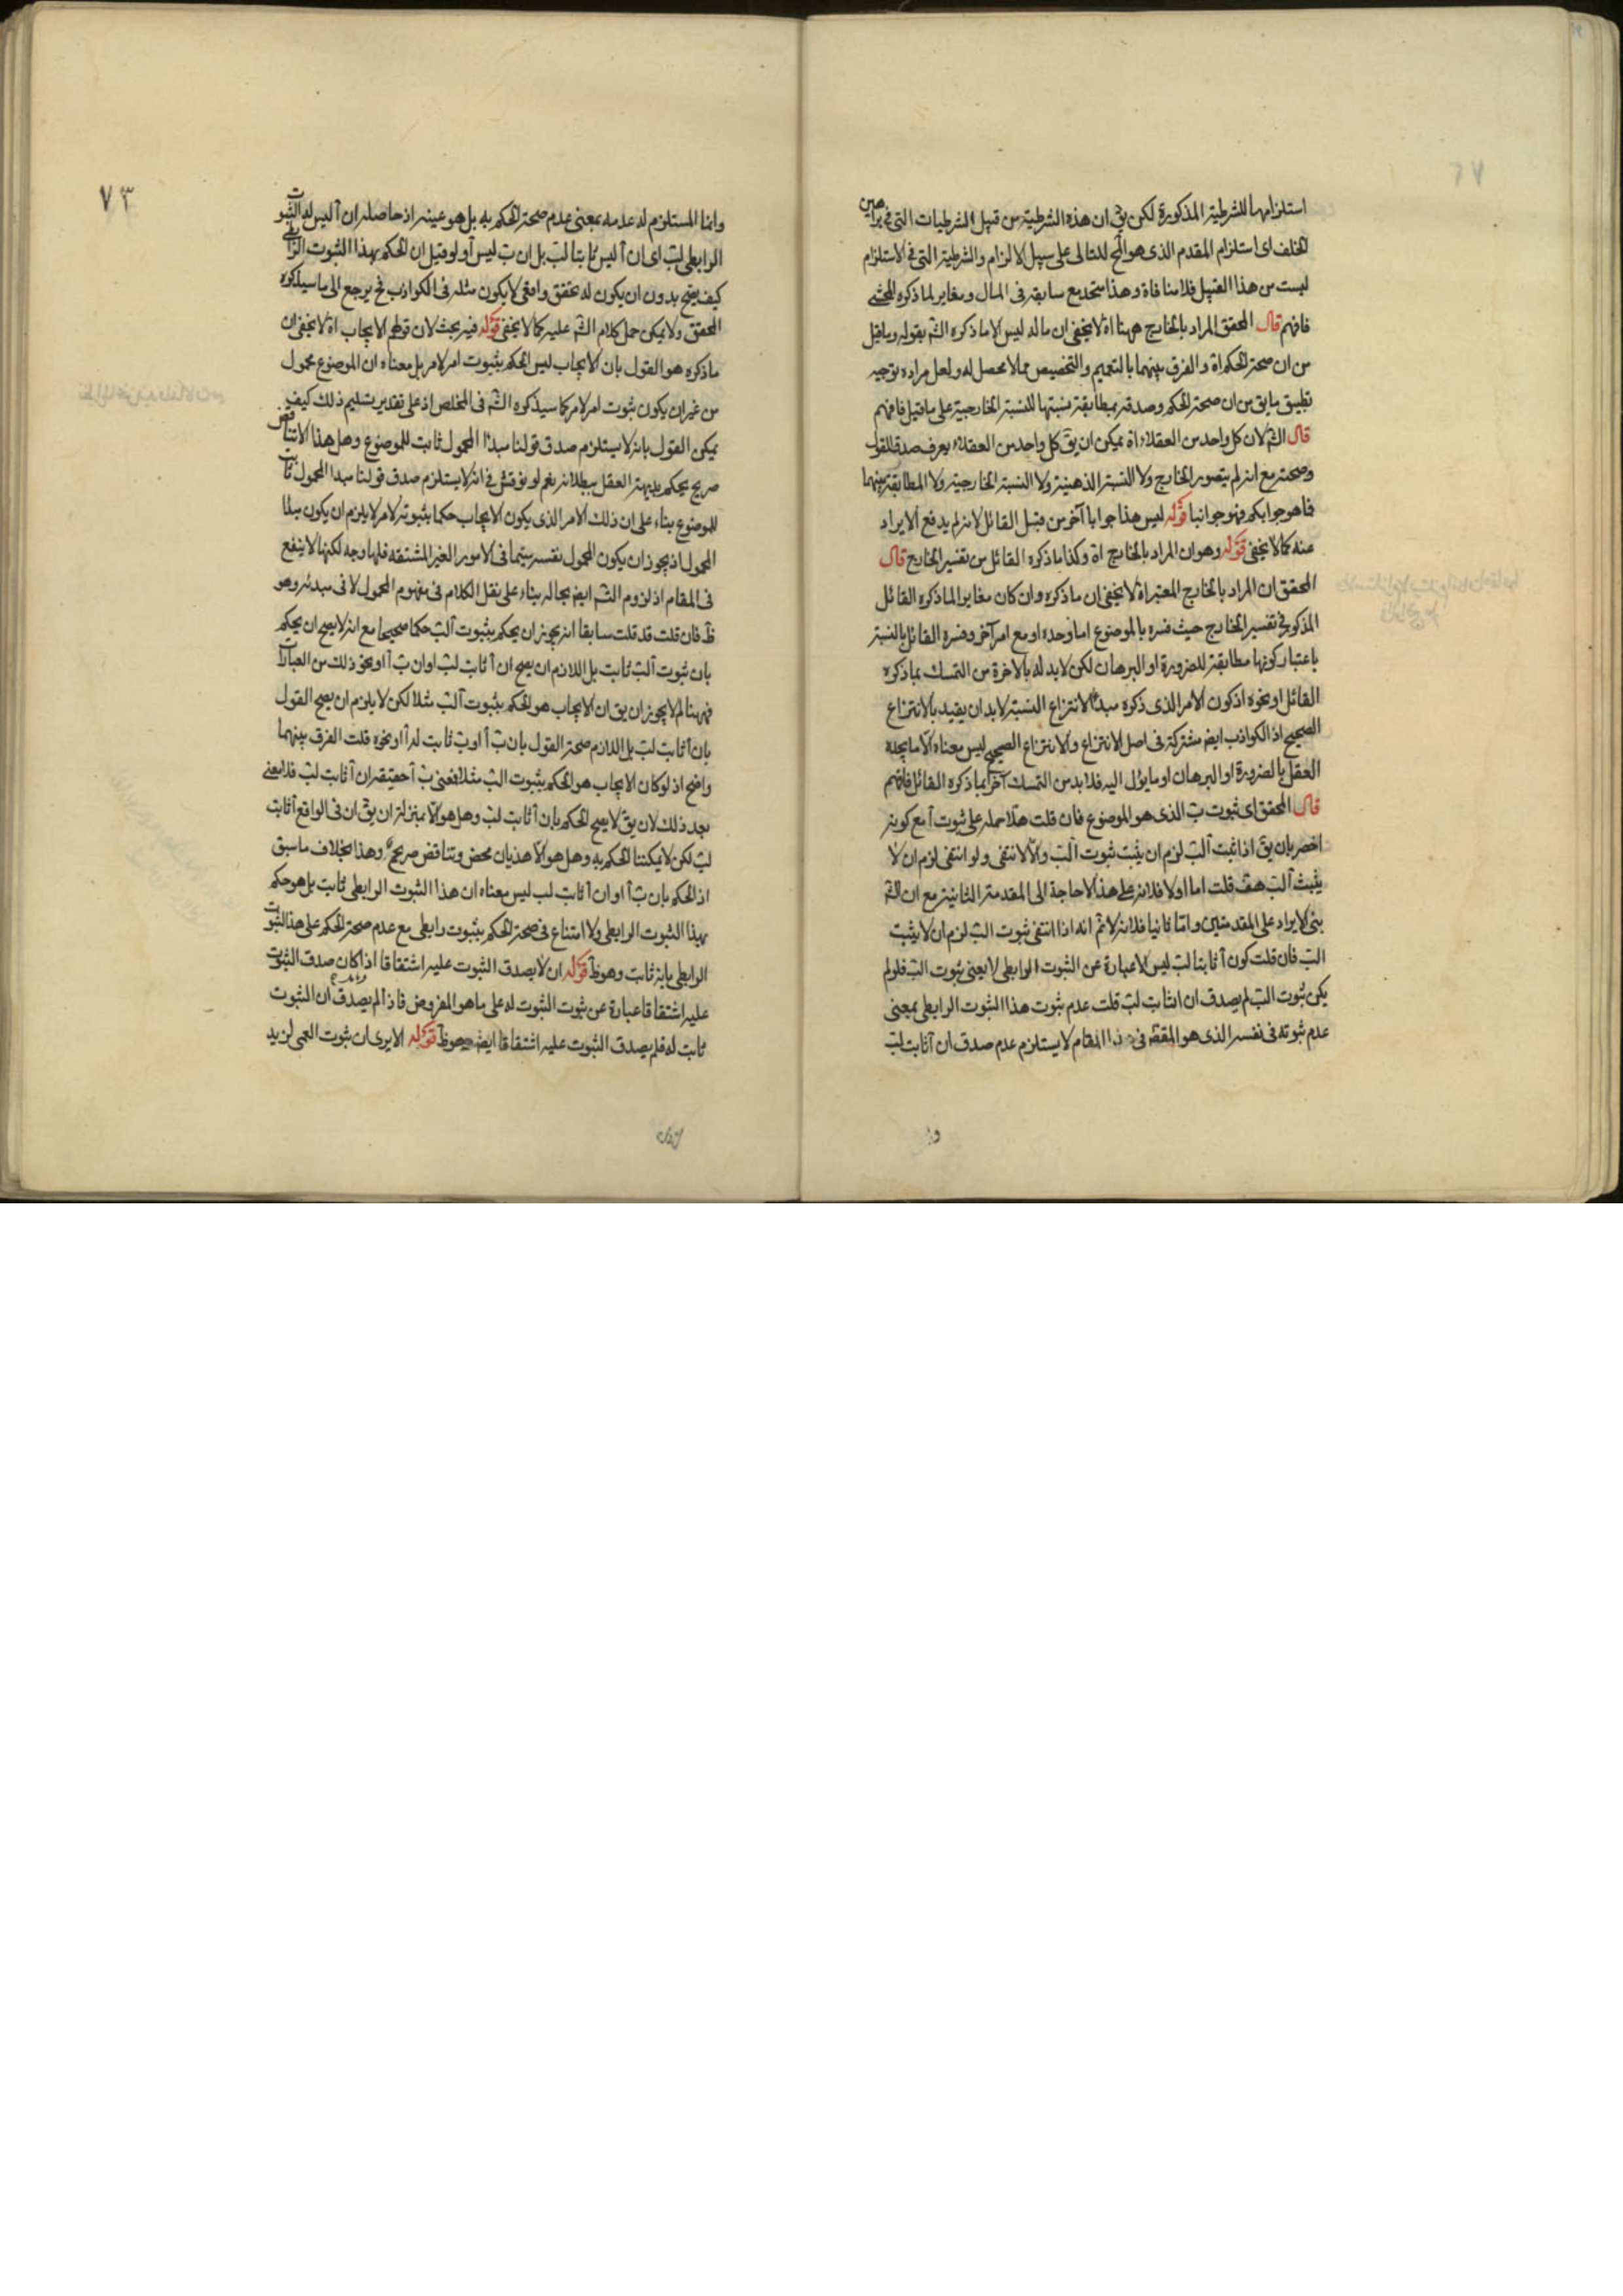 استلزامها للشرطية المذكورة لكن يق ان هذه الشرطية من قبيل الشرطيات التى فى براهين
الخلف اى استلزام المقدم الذى هو المح للتالى على سبيل الالزام والشرطية التى فى الاستلزام
ليست من هذا القبيل فلا منافاة وهذا متحد مع سابقه فى المال ومغاير لما ذكره المحشى
فافهم قال المحقق المراد بالخارج ههنا اه لا يخفى ان ماله ليس الا ما ذكره الش بقوله وما قيل
من ان صحة الحكم اه والفرق بينهما بالتعميم والتخصيص مما لا محصل له ولعل مراده توجيه
تطبيق ما يق من ان صحة الحكم وصدقه بمطابقة نسبتها للنسبة الخارجية على ما قيل فافهم
قال الش لان كل واحد من العقلاء اه يمكن ان يق كل واحد من العقلاء يعرف صدق القول
وصحته مع انه لم يتصور الخارج ولا النسبة الذهنية ولا النسبة الخارجية ولا المطابقة بينهما
فما هو جوابكم فهو جوابنا قوله ليس هذا جوابا آخر من قبل القائل لانه لم يدفع الايراد
عنه كما لا يخفى قوله وهو ان المراد بالخارج اه وكذا ما ذكره القائل من تفسير الخارج قال
المحقق ان المراد بالخارج المعتبر اه لا يخفى ان ما ذكره وان كان مغايرا لما ذكره القائل
المذكور فى تفسير الخارج حيث فسره بالموضوع اما وحده او مع امر آخر وفسره القائل بالنسبة
باعتبار كونها مطابقة للضرورة او البرهان لكن لا بد له بالاخرة من التمسك بما ذكره
القائل او نحوه اذ كون الامر الذى ذكره مبدأ لانتزاع النسبة لا بد ان يقيد بالانتزاع
الصحيح اذ الكواذب ايض مشتركة فى اصل الانتزاع والانتزاع الصحيح ليس معناه الا ما يجده
العقل بالضرورة او البرهان او ما يؤل اليه فلا بد من التمسك آخرا بما ذكره القائل فافهم
قال المحقق اى ثبوت ب الذى هو الموضوع فان قلت هلا حمله على ثبوت آ مع كونه
اخصر بان يق اذا ثبت آ لب لزم ان يثبت ثبوت آ لب والا لانتفى ولو انتفى لزم ان لا
يثبت آ لب هف قلت اما اولا فلانه على هذا لا حاجة الى المقدمة الثانية مع ان الش
بنى الايراد على المقدمتين واما ثانيا فلانه لا نم انه اذا انتفى ثبوت آ لب لزم ان لا يثبت
آ لب فان قلت كون آ ثابتا لب ليس الا عبارة عن الثبوت الرابطى لا يعنى ثبوت آ لب فلو لم
يكن ثبوت آ لب لم يصدق ان آ ثابت لب قلت عدم ثبوت هذا الثبوت الرابطى بمعنى
عدم ثبوته فى نفسه الذى هو المقصود فى هذا المقام لا يستلزم عدم صدق ان آ ثابت لب
وا
٧٣
وانما المستلزم له عدمه بمعنى عدم صحة الحكم به بل هو عينه اذ حاصله ان آ ليس له الثبوت
الرابطى لب اى ان آ ليس ثابتا لب بل ان ب ليس آ ولو قيل ان الحكم بهذا الثبوت الرابطى
كيف يصح بدون ان يكون له تحقق واقعى لا يكون مثله فى الكواذب فح يرجع الى ما سيذكره
المحقق ولا يمكن حمل كلام الش عليه كما لا يخفى قوله فيه بحث لان قولهم الايجاب اه لا يخفى ان
ما ذكره هو القول بان الايجاب ليس الحكم بثبوت امر لامر بل معناه ان الموضوع محمول
من غير ان يكون ثبوت امر لامر كما سيذكره الش فى المخلص اذ على تقدير تسليم ذلك كيف
يمكن القول بانه لا يستلزم صدق قولنا مبدأ المحمول ثابت للموضوع وهل هذا الا تناقض
صريح يحكم بديهة العقل ببطلانه نعم لو نوقش فى انه لا يستلزم صدق قولنا مبدا المحمول ثابت
للموضوع بناء على ان ذلك الامر الذى يكون الايجاب حكما بثبوته لامر لا يلزم ان يكون مبدأ
المحمول اذ يجوز ان يكون المحمول نفسه سيما فى الامور الغير المشتقه فلها وجه لكنها لا ينفع
فى المقام اذ لزوم التس ايض بحاله بناء على نقل الكلام فى مفهوم المحمول لا فى مبدئه وهو
ظ فان قلت قد قلت سابقا انه يجوز ان يحكم بثبوت آ لب حكما صحيحا مع انه لا يصح ان يحكم
بان ثبوت آ لب ثابت بل اللازم ان يصح ان آ ثابت لب او ان ب آ او نحو ذلك من العبارات
فههنا لم لا يجوز ان يق ان الايجاب هو الحكم بثبوت آ لب مثلا لكن لا يلزم ان يصح القول
بان آ ثابت لب بل اللازم صحة القول بان ب آ او ب ثابت له آ او نحوه قلت الفرق بينهما
واضح اذ لو كان الايجاب هو الحكم بثبوت آ لب مثلا فمعنى ب آ حقيقة ان آ ثابت لب فلا معنى
بعد ذلك لان يق لا يصح الحكم بان آ ثابت لب وهل هو الا بمنزلة ان يق ان فى الواقع آ ثابت
لب لكن لا يمكننا الحكم به وهل هو الا هذيان محض وتناقض صريح وهذا بخلاف ما سبق
اذ الحكم بان ب آ او ان آ ثابت لب ليس معناه ان هذا الثبوت الرابطى ثابت بل هو حكم
بهذا الثبوت الرابطى ولا امتناع فى صحة الحكم بثبوت رابطى مع عدم صحة الحكم على هذا الثبوت
الرابطى بانه ثابت وهو ظ قوله ان لا يصدق الثبوت عليه اشتقاقا اذا كان صدق الثبوت
عليه اشتقاقا عبارة عن ثبوت الثبوت له على ما هو المفروض فاذا لم يصدق ان الثبوت
ثابت له فلم يصدق الثبوت عليه اشتقاقا ايض وهو ظ قوله الا يرى ان ثبوت العمى لزيد